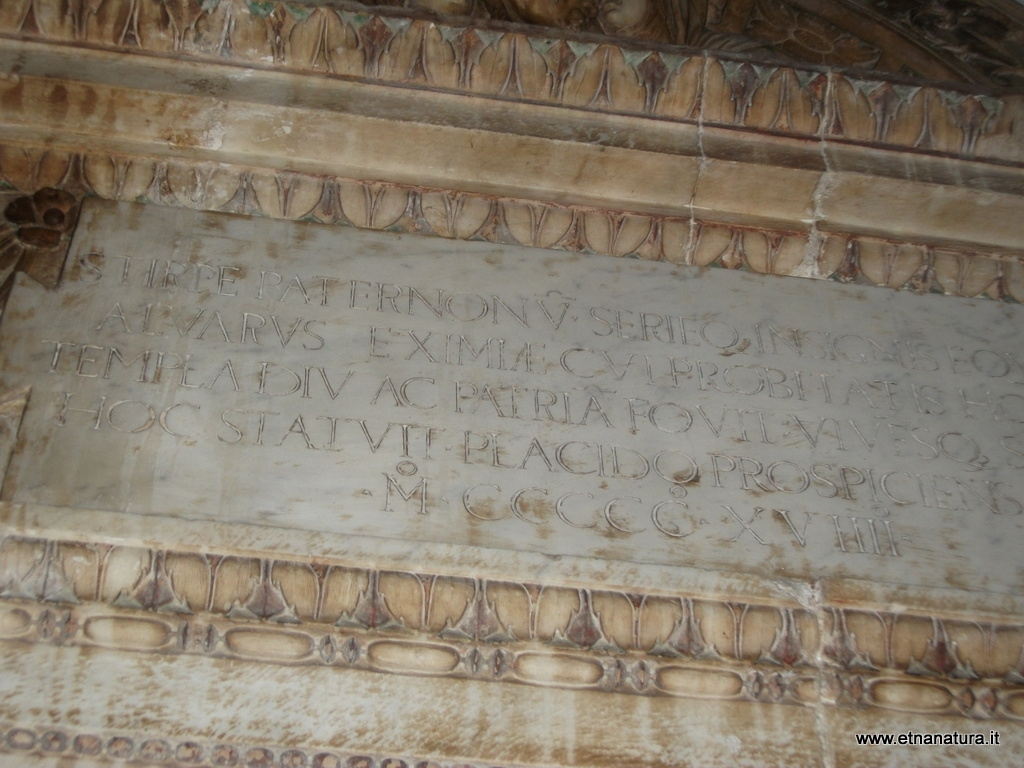 STIRPE PATERNON V̄· SERIEQ INSIGNIS EQV
ALVARVS EXIMIÆ CVI PROBITATIS HO
TEMPLA DIV AC PATRIĀ FOVIT VIVESQ S
HOC STATVIT PLACIDO PROSPICIENS
·M° CCCCC° XVIIII
www.etnanatura.it